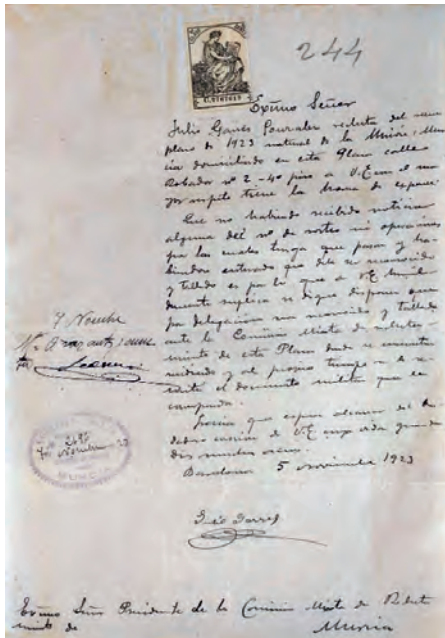 244
Exmo Señor
Julio Garcés recluta del reem
plazo de 1923 natural de la Unión, Mur
cia domiciliado en esta Plaza calle
Robador nº 2-4º piso a V.E. con el ma
yor respeto tiene la honra de exponer
Que no habiendo recibido noticia
alguna del nº de sorteo ni operaciones
por las cuales tenga que pasar y ha
biendose enterado que debe ser reconocido
y tallado es por lo que a V.E. humil
demente suplica se digne disponer que
por delegación sea reconocido y tallado
ante la Comisión Mixta de recluta
miento de esta Plaza donde se encuentra
residiendo y al propio tiempo se le re
mita el documento militar que le
corresponda.
Gracia que espera alcanzar del
corazón de V.E. cuya vida guarde
Dios muchos años.
Barcelona 5 noviembre 1923
7 Novbre
MURCIA
Exmo Señor Presidente de la Comisión Mixta de Recluta
miento de Murcia